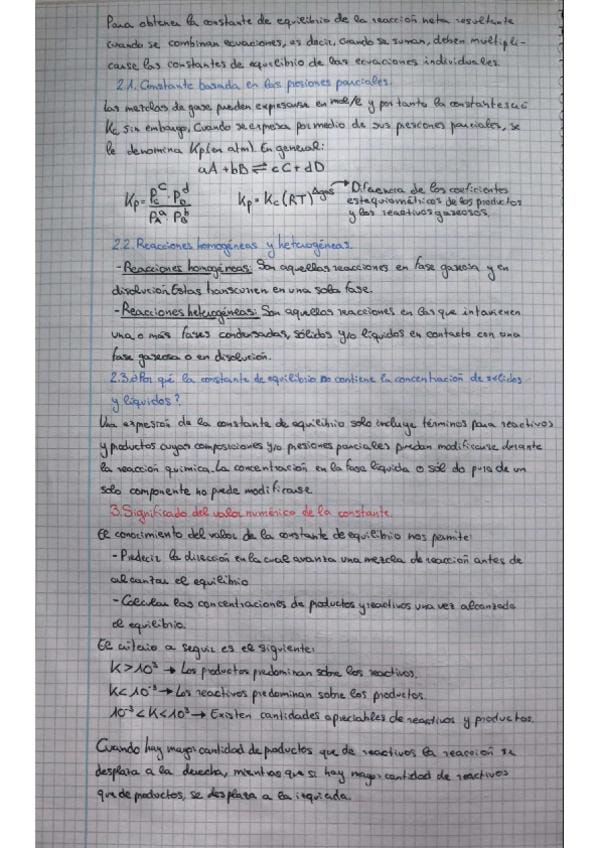 Para obtener la constante de equilibrio de la reacción neta resultante
cuando se combinan ecuaciones, es decir, cuando se suman, deben multipli-
carse las constantes de equilibrio de las ecuaciones individuales.
2.1. Constante basada en las presiones parciales.
Las mezclas de gase pueden expresarse en mol/l y por tanto la constante será
Kc sin embargo, Cuando se expresa por medio de sus presiones parciales, se
le denomina Kp (en atm). En general:
aA + bB ⇌ cC + dD
Kp = Pc^c · PD^d / PA^a · PB^b   Kp = Kc (RT)^Δgas → Diferencia de los coeficientes
estequiométricos de los productos
y los reactivos gaseosos.
2.2. Reacciones homogéneas y heterogéneas.
- Reacciones homogéneas: Son aquellas reacciones en fase gaseosa y en
disolución. Estas transcurren en una sola fase.
- Reacciones heterogéneas: Son aquellas reacciones en las que intervienen
una o más fases condensadas, sólidos y/o líquidos en contacto con una
fase gaseosa o en disolución.
2.3. ¿Por qué la constante de equilibrio no contiene la concentración de sólidos
y líquidos?
Una expresión de la constante de equilibrio solo incluye términos para reactivos
y productos cuyas composiciones y/o presiones parciales puedan modificarse durante
la reacción química. La concentración en la fase líquida o sólido pura de un
solo componente no puede modificarse.
3. Significado del valor numérico de la constante.
El conocimiento del valor de la constante de equilibrio nos permite:
- Predecir la dirección en la cual avanza una mezcla de reacción antes de
alcanzar el equilibrio
- Calcular las concentraciones de productos y reactivos una vez alcanzado
el equilibrio.
El criterio a seguir es el siguiente:
K > 10³ → Los productos predominan sobre los reactivos.
K < 10⁻³ → Los reactivos predominan sobre los productos.
10⁻³ < K < 10³ → Existen cantidades apreciables de reactivos y productos.
Cuando hay mayor cantidad de productos que de reactivos la reacción se
desplaza a la derecha, mientras que si hay mayor cantidad de reactivos
que de productos, se desplaza a la izquierda.